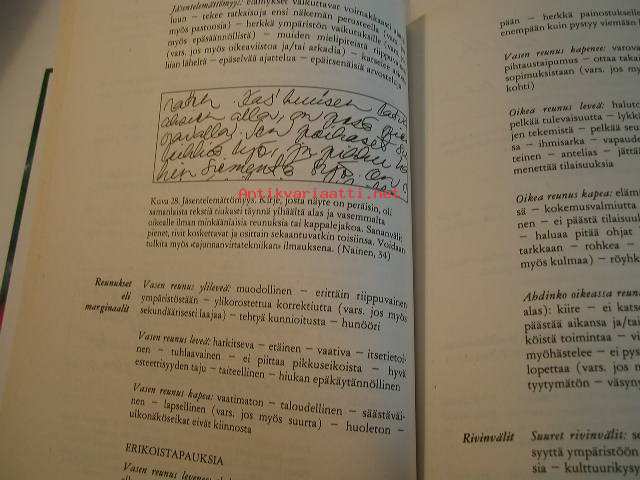 Jäsentelemättömyys: elämykset vaikuttavat voimakkaasti
luun – tekee ratkaisuja ensi näkemän perusteella (vars.
myös pastuosia) – herkkä ympäristön vaikutuksille (vars.
myös epäsäännöllistä) – muiden mielipiteistä riippuva
(vars. jos myös oikeaviistoa ja/tai arkadia) – katselee asioita
liian läheltä – epäselvää ajattelua – epäitsenäisiä arvosteluja
Antikvariaatti.net
Kuva 28. Jäsentelemättömyys. Kirje, josta näyte on peräisin, oli
samanlaista tekstiä tiukasti täynnä ylhäältä alas ja vasemmalta
oikealle ilman minkäänlaisia reunuksia tai kappalejakoa. Sananvälit
pienet, rivit koskettavat ja osittain sekaantuvatkin toisiinsa. Voidaan
tulkita myös »tajunnanvirtatekniikan» ilmauksena. (Nainen, 34)
Reunukset
eli
marginaalit
Vasen reunus ylileveä: muodollinen – erittäin riippuvainen
ympäristöstään – ylikorostettua korrektiutta (vars. jos myös
sekundäärisesti laajaa) – tehtyä kunnioitusta – hunööri
Vasen reunus leveä: harkitseva – etäinen – vaativa – itsetietoi-
nen – tuhlaavainen – ei piittaa pikkuseikoista – hyvä
esteettisyyden taju – taiteellinen – hiukan epäkäytännöllinen
Vasen reunus kapea: vaatimaton – taloudellinen – säästäväi-
nen – lapsellinen (vars. jos myös suurta) – huoleton –
ulkonäköseikat eivät kiinnosta
ERIKOISTAPAUKSIA
Vasen reunus levenee:
pään – herkkä painostukselle
enempään kuin pystyy viemään
Vasen reunus kapenee: varova
pihtaustaipumus – ottaa takai
sopimuksistaan (vars. jos myös
kohti)
Oikea reunus leveä: halutto
pelkää tulevaisuutta – lykkä
jen tekemistä – pelkää seu
sia – ihmisarka – vapaude
teinen – antelias – jättä
menettää tilaisuuksia
Oikea reunus kapea: eläm
sä – kokemusvalmiutta
nen – ei päästä tilaisuu
– haluaa pitää ohjat
tarkkaan – rohkea –
myös kulmaa) – röyhk
Ahdinko oikeassa reuna
alas): kiire – ei katse
päästää aikansa ja/tai
köistä toimintaa – vi
myöhästelee – ei pys
lopettaa (vars. jos
tyytymätön – väsyn
Rivinvälit
Suuret rivinvälit: se
syyttä ympäristöön
sia – kulttuurikysy